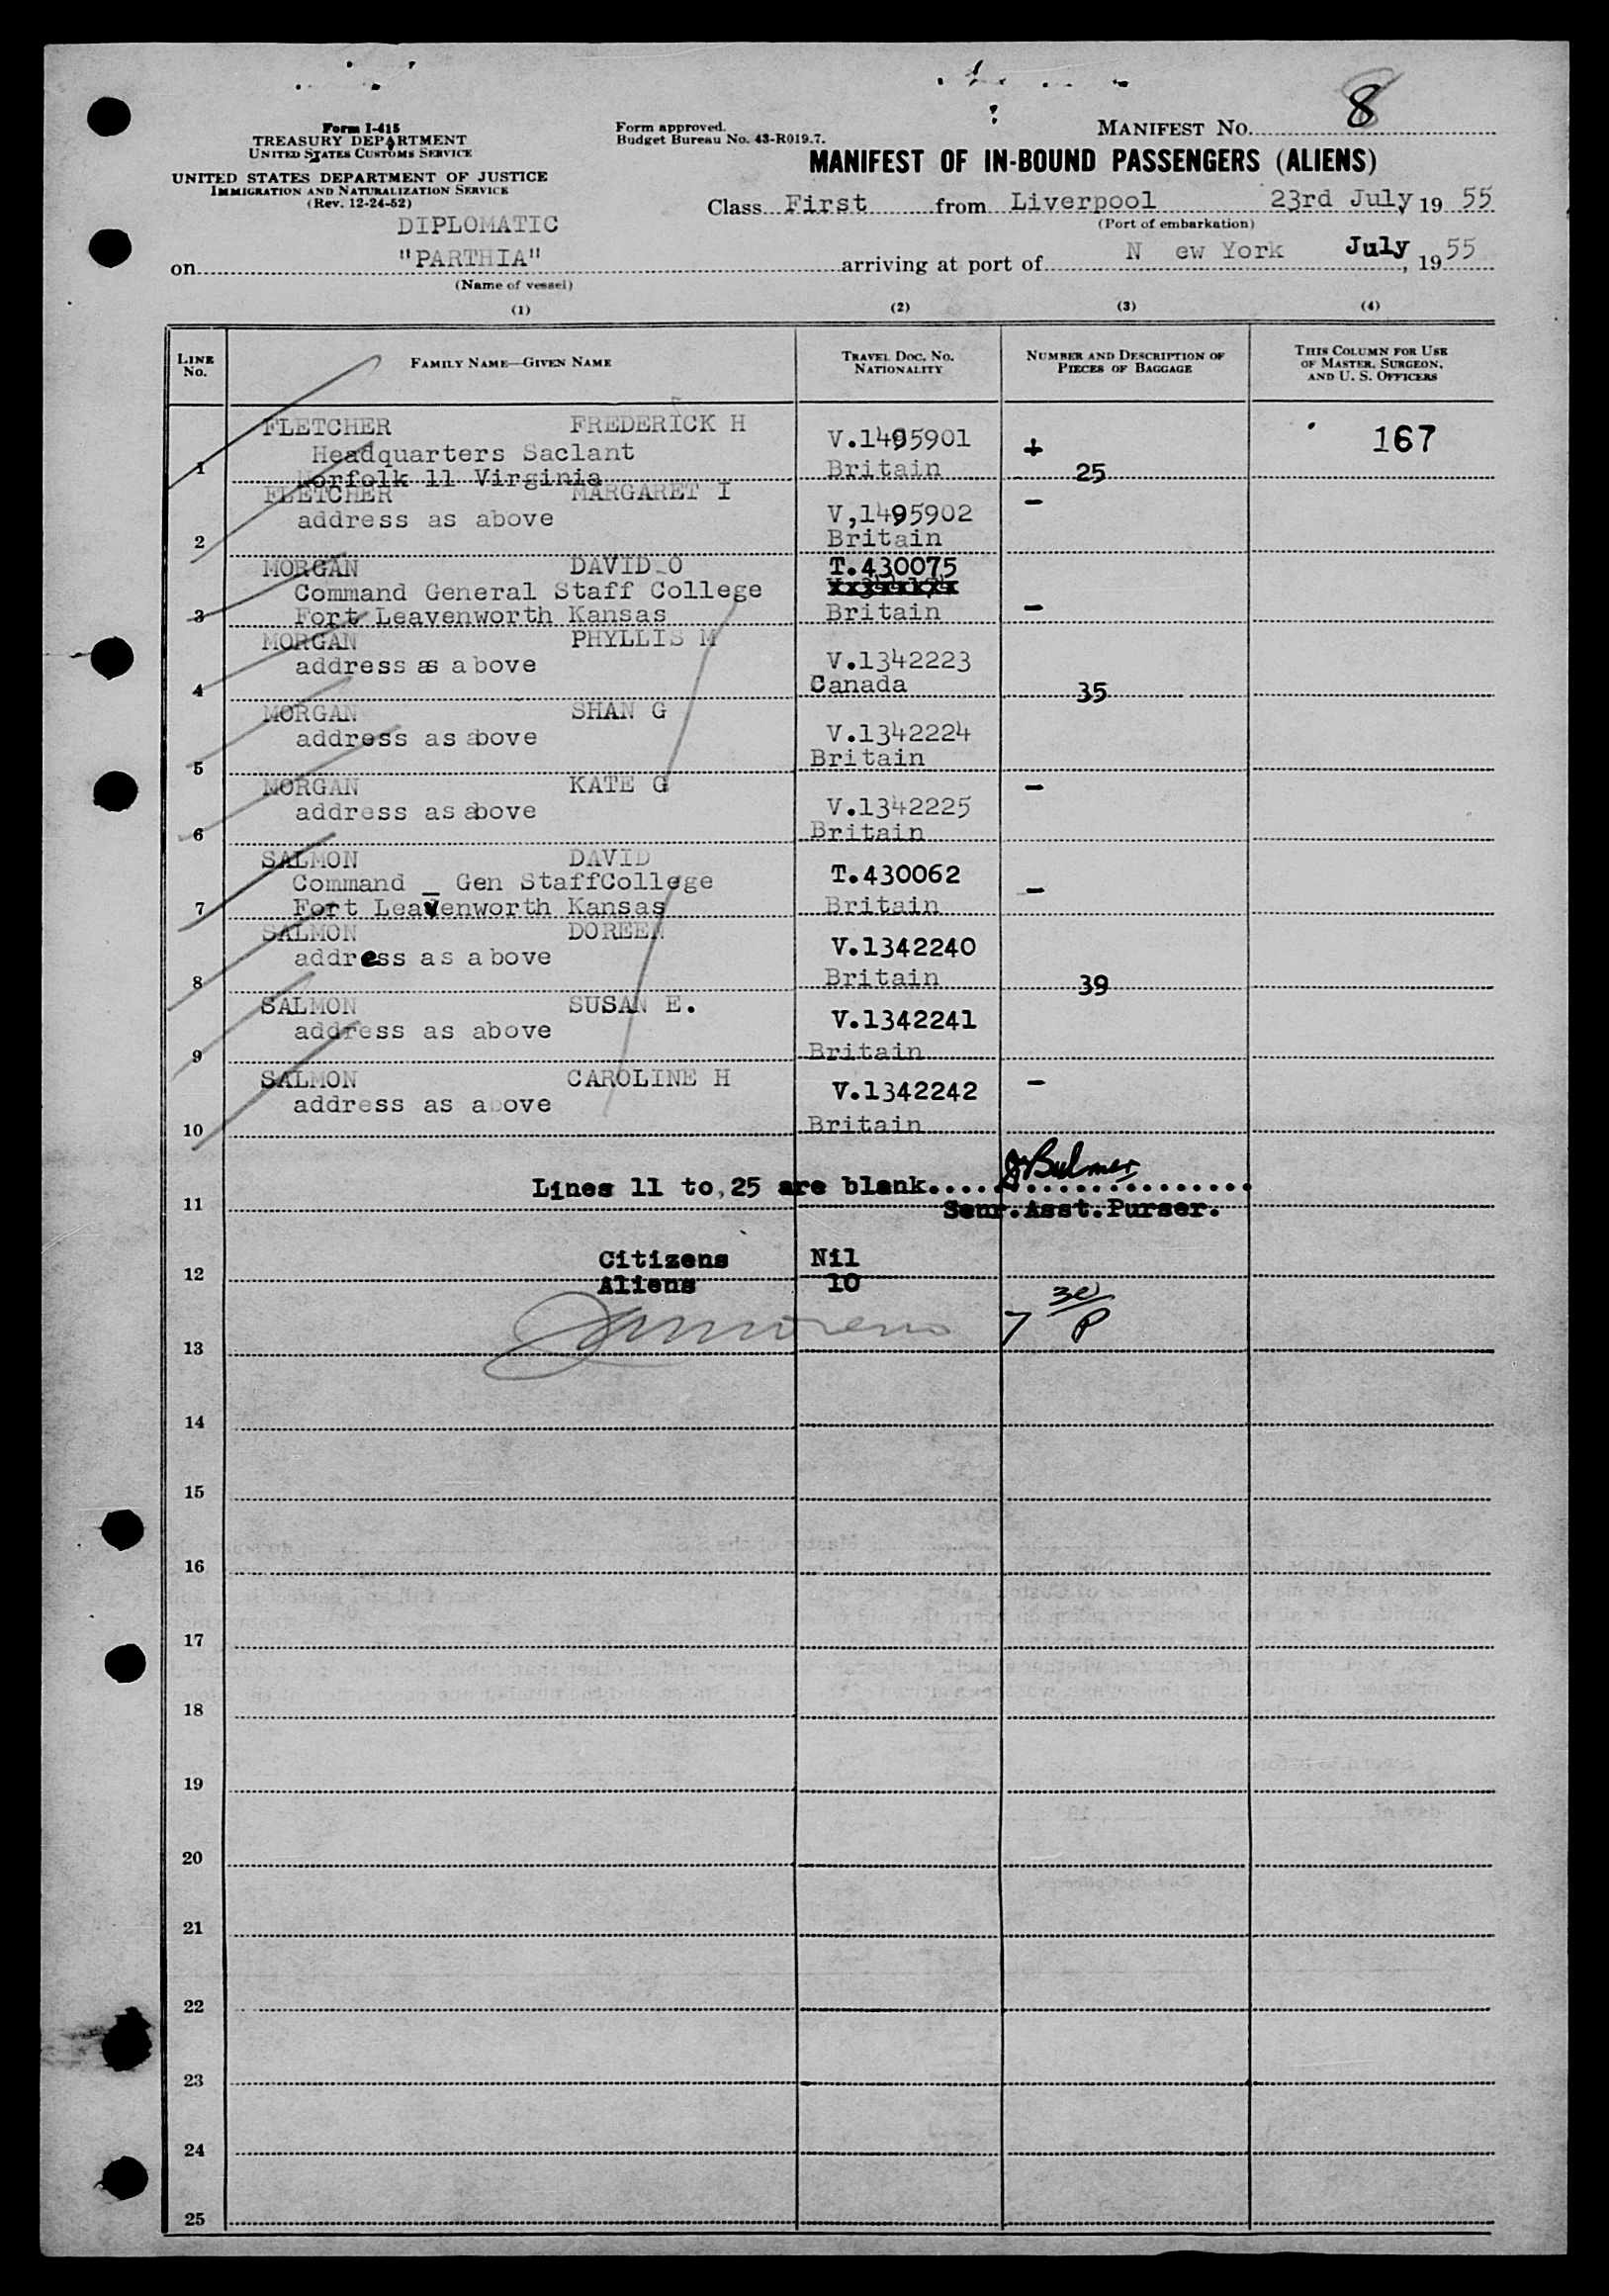 Form I-415
TREASURY DEPARTMENT
UNITED STATES CUSTOMS SERVICE
UNITED STATES DEPARTMENT OF JUSTICE
IMMIGRATION AND NATURALIZATION SERVICE
(Rev. 12-24-52)
Form approved.
Budget Bureau No. 43-R019.7.
MANIFEST NO. 8
MANIFEST OF IN-BOUND PASSENGERS (ALIENS)
Class First from Liverpool 23rd July, 19 55
(Port of embarkation)
DIPLOMATIC
on "PARTHIA" arriving at port of N ew York July, 19 55
(Name of vessel)
(1) (2) (3) (4)
LINE NO. FAMILY NAME—GIVEN NAME TRAVEL DOC. NO. NATIONALITY NUMBER AND DESCRIPTION OF PIECES OF BAGGAGE THIS COLUMN FOR USE OF MASTER, SURGEON, AND U. S. OFFICERS
FLETCHER FREDERICK H V.1495901 + 167
Headquarters Saclant
1 Norfolk 11 Virginia Britain 25
FLETCHER MARGARET I –
address as above V,1495902
2 Britain
MORGAN DAVID O T.430075
Command General Staff College
3 Fort Leavenworth Kansas Britain –
MORGAN PHYLLIS M
address as above V.1342223
4 Canada 35
MORGAN SHAN G
address as above V.1342224
5 Britain
MORGAN KATE G –
address as above V.1342225
6 Britain
SALMON DAVID T.430062
Command _ Gen StaffCollege –
7 Fort Leavenworth Kansas Britain
SALMON DOREEN
address as above V.1342240
8 Britain 39
SALMON SUSAN E.
address as above V.1342241
9 Britain
SALMON CAROLINE H V.1342242 –
address as a ove
10 Britain
JBulmer
Lines 11 to 25 are blank....................
11 Senr.Asst.Purser.
Citizens Nil
12 Aliens 10
7 30/P
13
14
15
16
17
18
19
20
21
22
23
24
25